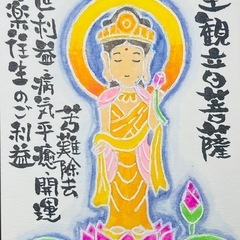 觀音菩薩
苦難除去
世利益・病気平癒・開運
楽往生のご利益